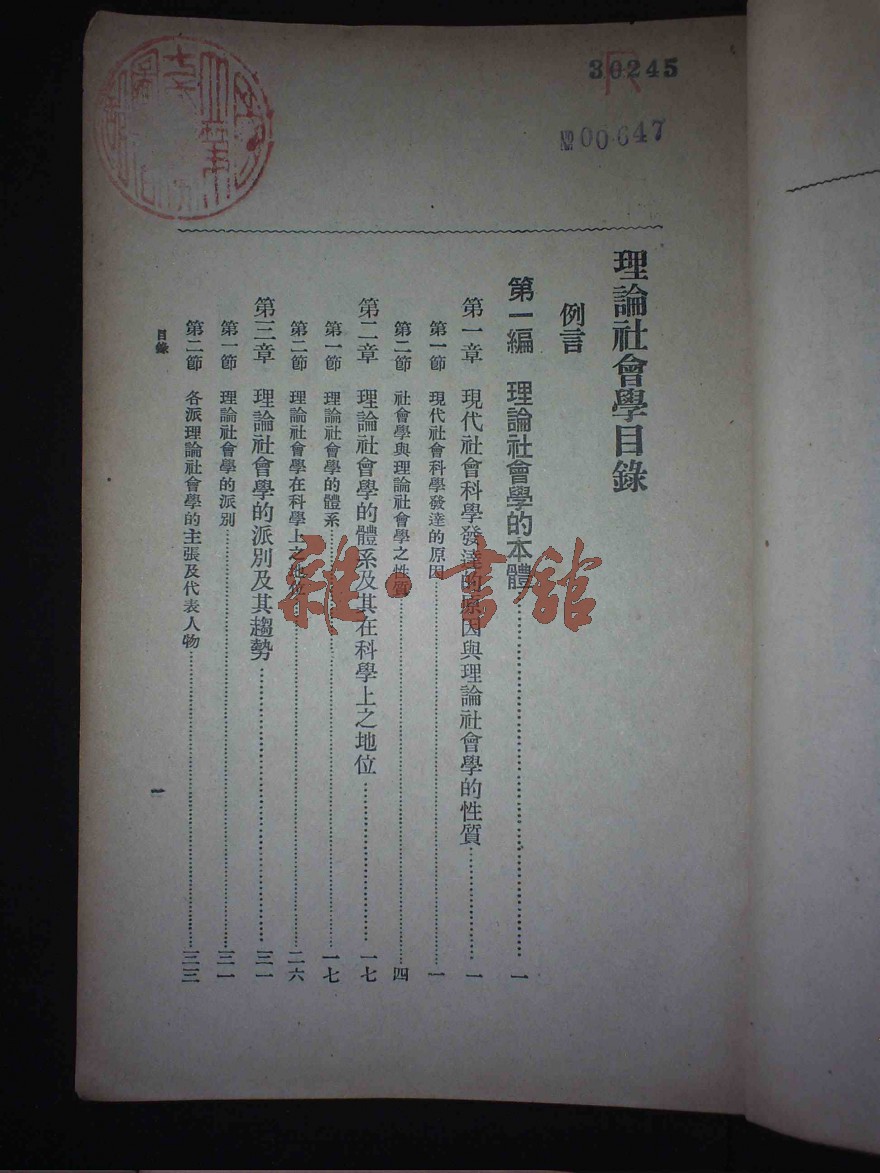 30245
№00647
理論社會學目錄
例言
第一編 理論社會學的本體……一
第一章 現代社會科學發達的原因與理論社會學的性質……一
第一節 現代社會科學發達的原因……一
第二節 社會學與理論社會學之性質……四
第二章 理論社會學的體系及其在科學上之地位……一七
第一節 理論社會學的體系……一七
第二節 理論社會學在科學上之地位……二六
第三章 理論社會學的派別及其趨勢……三一
第一節 理論社會學的派別……三一
第二節 各派理論社會學的主張及代表人物……三三
目錄
一
雜·書館